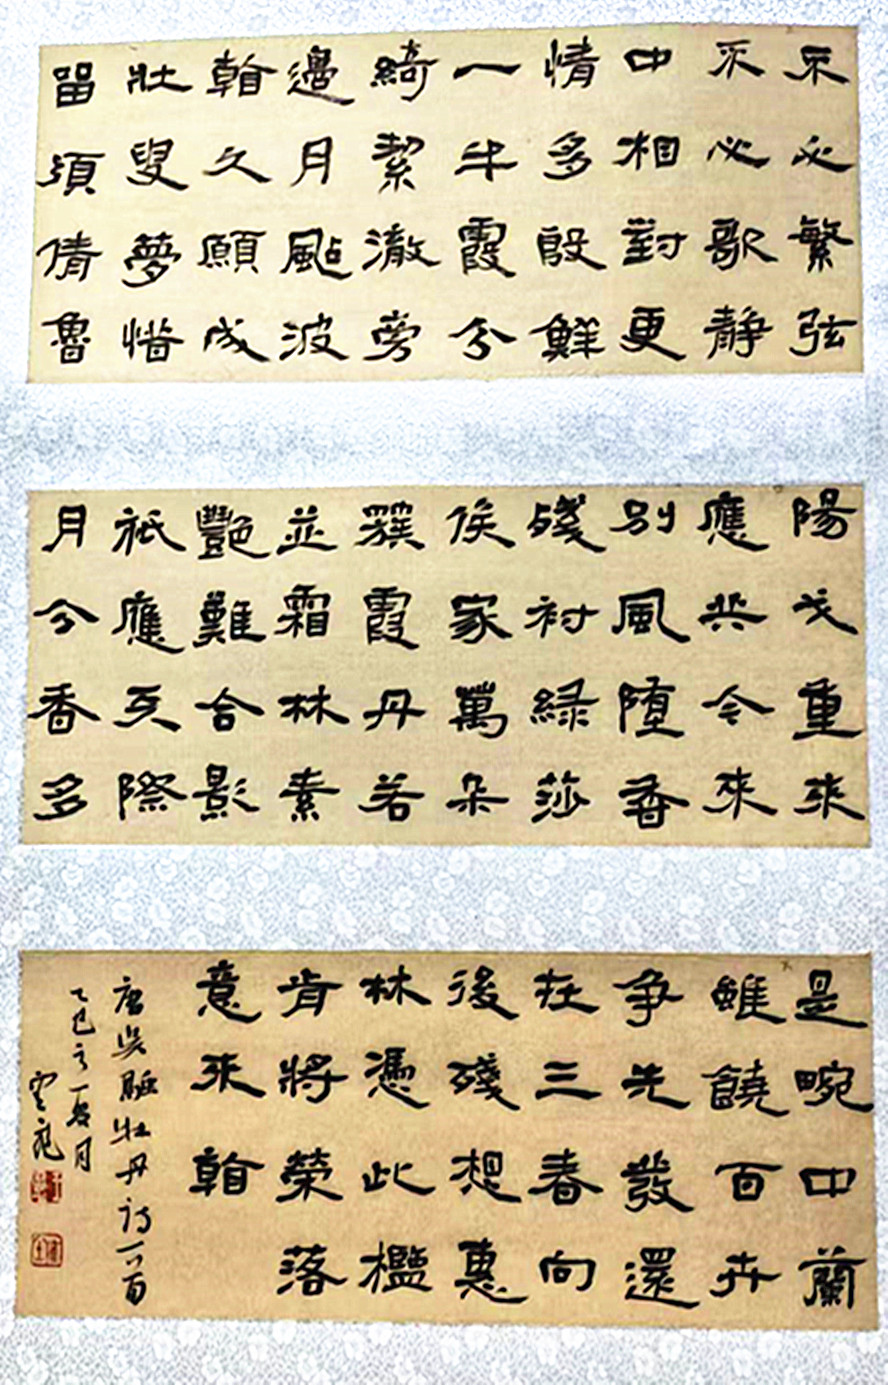 不必繁弦
不必歌静
中相對更
情多殷鮮
一半霞分
綺絜澈旁
邊月颭波
看久願成
壯叟夢惜
留須倩魯
陽戈重來
應共今來
別風堕香
殘衬綠莎
侯家萬朵
簇霞丹若
並霜林素
豔難合影
祇應天際
月分香多
是畹中蘭
雖饒百卉
争先發還
在三春向
後殘想惠
林憑此檻
肯將榮落
意來看
唐吳融牡丹詩二首
乙巳